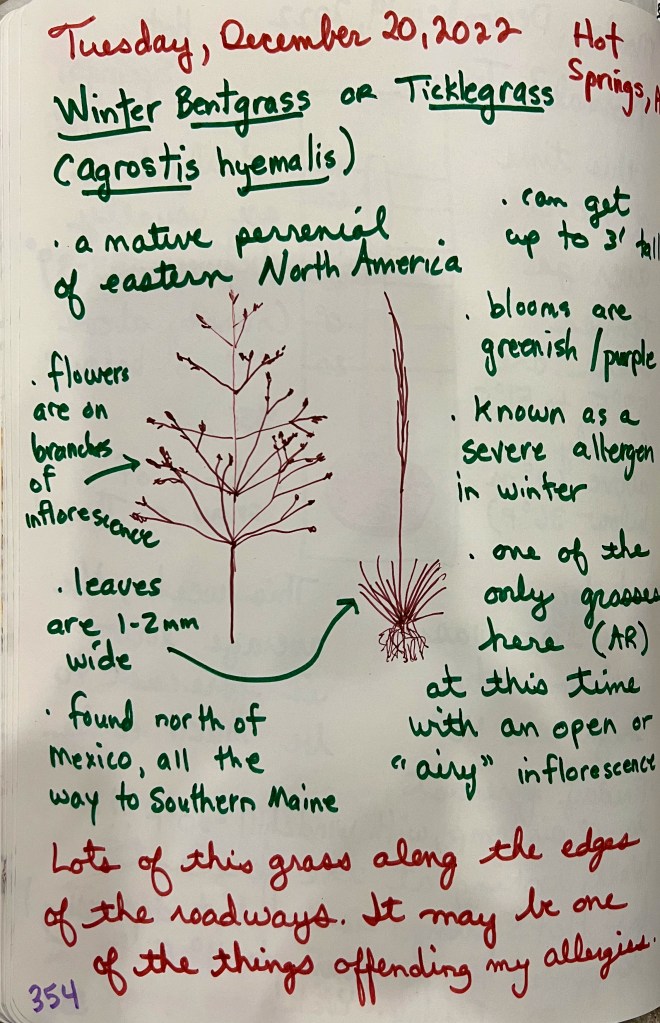 Tuesday, December 20, 2022
Hot
Springs, A
Winter Bentgrass OR Ticklegrass
(agrostis hyemalis)
· a native perrenial
of eastern North America
· can get
up to 3' tall
· blooms are
greenish/purple
· flowers
are on
branches
of
inflorescence
· Known as a
severe allergen
in winter
· leaves
are 1-2mm
wide
· one of the
only grasses
here (AR)
at this time
with an open or
"airy" inflorescence
· found north of
Mexico, all the
way to Southern Maine
Lots of this grass along the edges
of the roadways. It may be one
of the things offending my allergies.
354